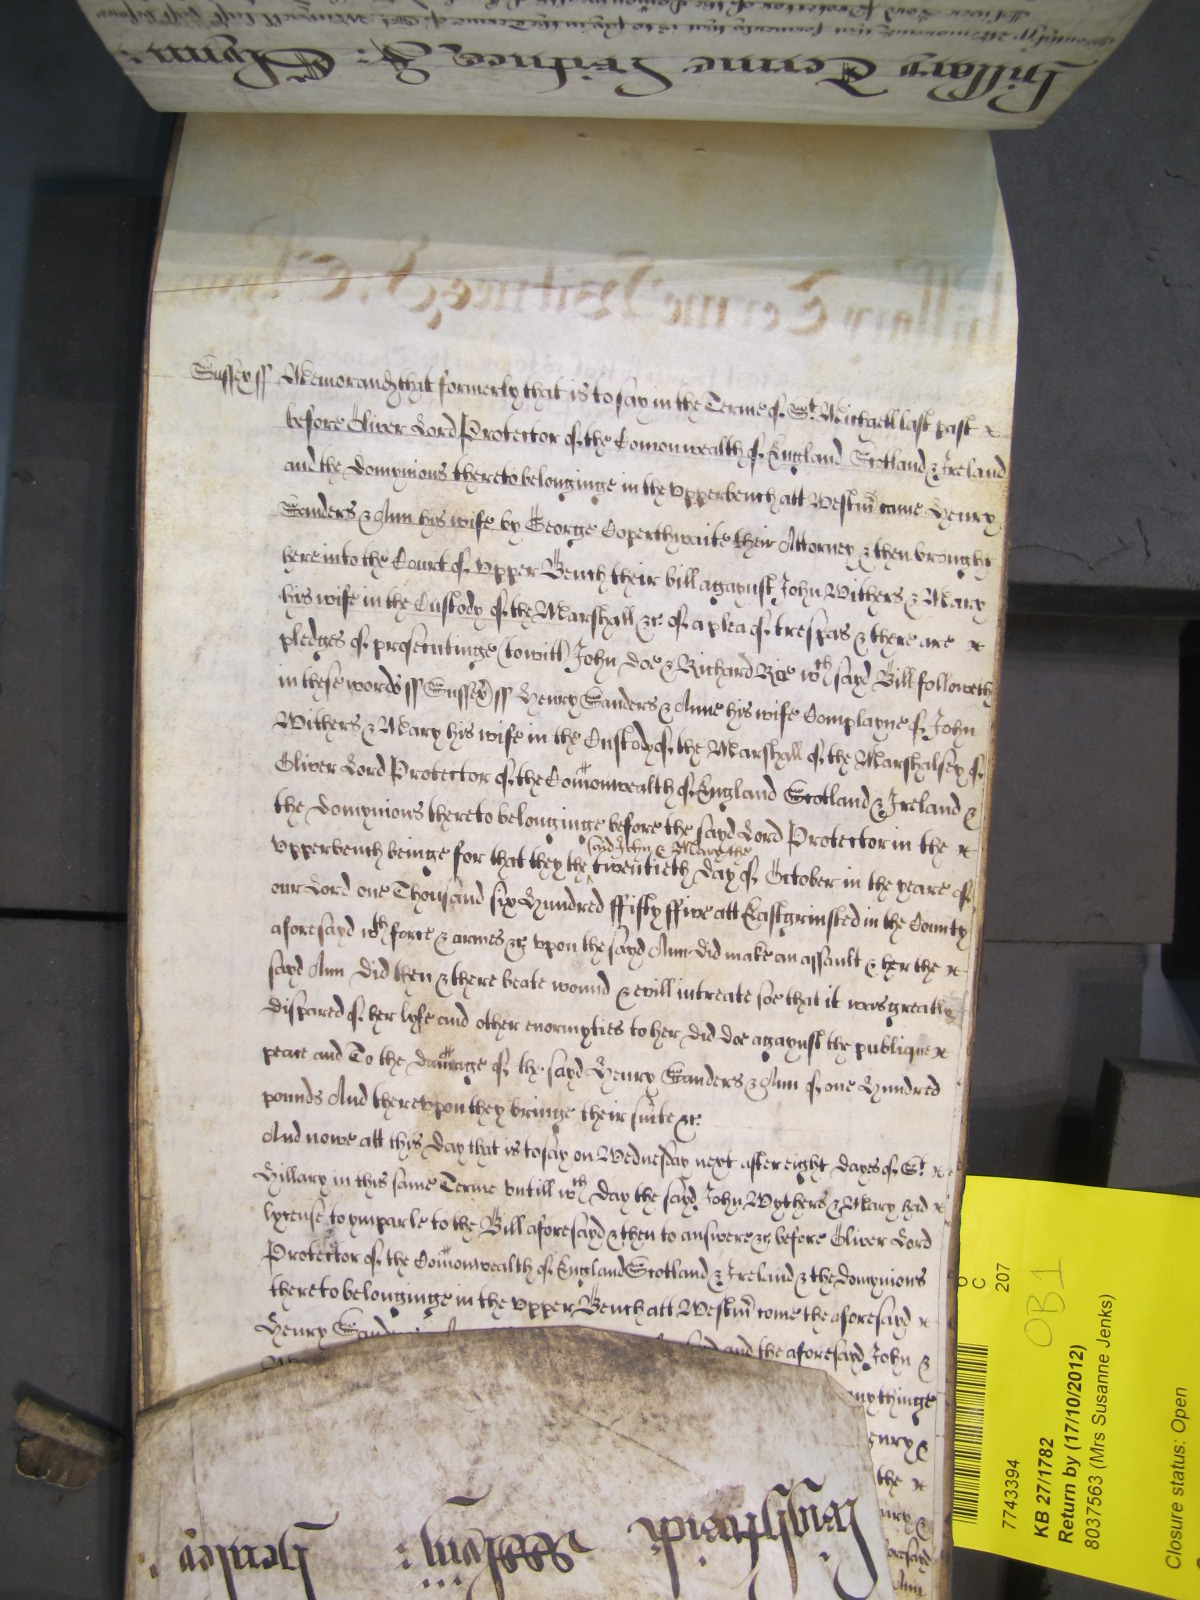 Hillary Terme Witnes J: Glynn:
Sussex ss Memorand that formerly that is to say in the Terme of St Michaell last past
before Oliver Lord Protector of the Comonwealth of England Scotland & Ireland
and the Domynions thereto belonginge in the upperbench att Westm came Henry
Sanders & Ann his wife by George Coperthwaite their Attorney & then brought
here into the Court of upper Bench their bill agaynst John Withers & Mary
his wife in the Custody of the Marshall &c of a plea of trespas & there are
pledges of prosecutinge (to witt) John Doe & Richard Roe wch sayd Bill followeth
in these words ss Sussex ss Henry Sanders & Anne his wife Complayne of John
Withers & Mary his wife in the Custody of the Marshall of the Marshalsey of
Oliver Lord Protector of the Comonwealth of England Scotland & Ireland &
the Domynions thereto belonginge before the sayd Lord Protector in the
sayd John & Mary the
upperbench beinge for that they the twentieth day of October in the yeare of
our Lord one Thousand six Hundred ffifty ffive att Eastgrinsted in the County
aforesayd wth force & armes &c upon the sayd Ann did make an assault & her the
sayd Ann did then & there beate wound & evill intreate soe that it was greatly
dispared of her lyfe and other enormyties to her did doe agaynst the publique
peace and To the damage of the sayd Henry Sanders & Ann of one Hundred
pounds And thereupon they bringe their suite &c
And nowe att this Day that is to say on Wednesday next after eight dayes of St
Hillary in this same Terme untill wch day the sayd John Wythers & Mary had
lycense to ymparle to the Bill aforesayd & then to answere &c before Oliver Lord
Protector of the Comonwealth of England Scotland & Ireland & the Domynions
thereto belonginge in the upper Bench att Westm come the aforesayd
Henry and the aforesayd John &
anythinge
Henry &
the
aforesayd
Ann
Henley
207
OB 1
7743394
KB 27/1782
Return by (17/10/2012)
8037563 (Mrs Susanne Jenks)
Closure status: Open